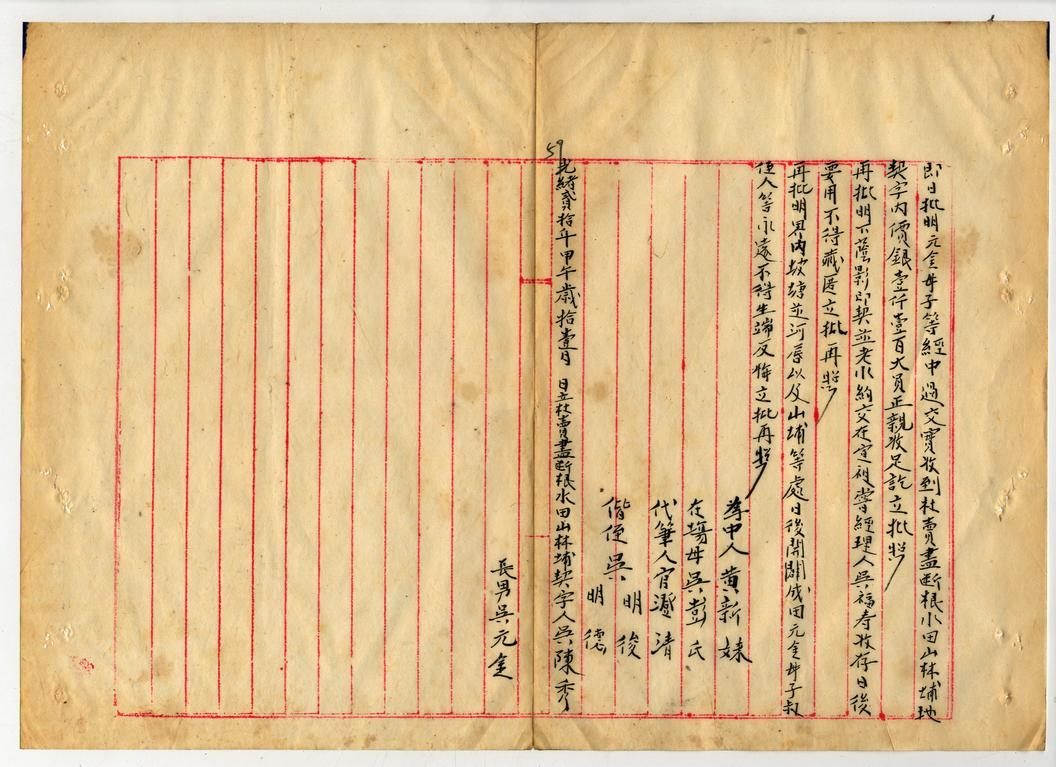 即日批明元金母子等經中過交實收到杜賣盡斷根水田山林埔地
契字內價銀壹仟壹百大員正親收足訖立批照
再批明下蔭影即契並老水約交在定祖嘗經理人吳福寿收存日後
要用不得藏匿立批再照
再批明界內坡塘並河唇以及山埔等處日後開闢成田元金母子叔
侄人等永遠不得生端反悔立批再照
為中人黃新妹
在場母吳彭氏
代筆人官瀅清
偕侄吳明後
明德
59
光緒貳拾年甲午歲拾壹月 日立杜賣盡斷根水田山林埔契字人吳陳秀
長男吳元金